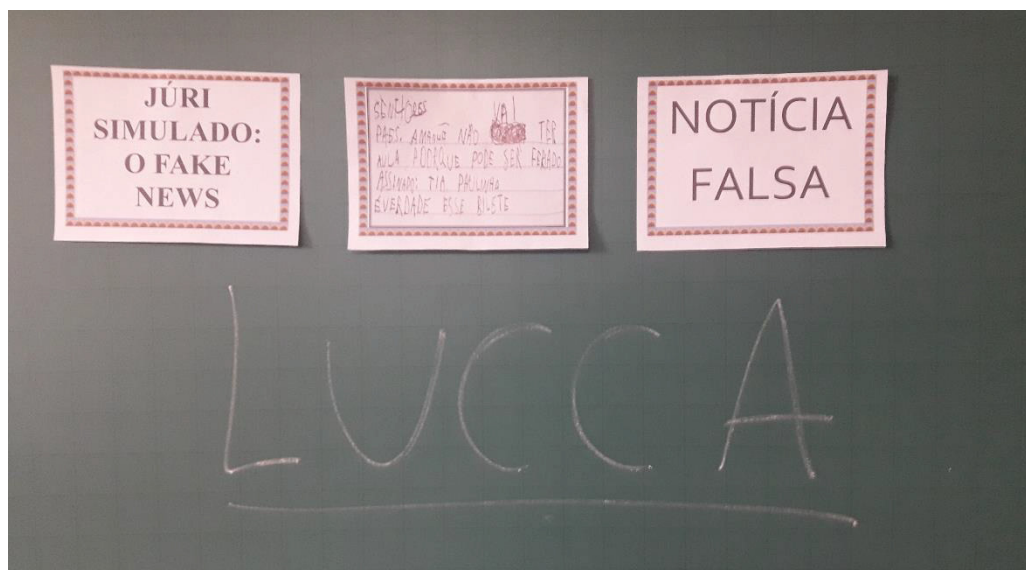 JÚRI
SIMULADO:
O FAKE
NEWS
SENHORES VAI
PAES. AMANHÃ NÃO TER
AULA PORQUE PODE SER FERIADO
ASSINADO: TIA PAULINHA
É VERDADE ESSE BILETE
NOTÍCIA
FALSA
LUCCA